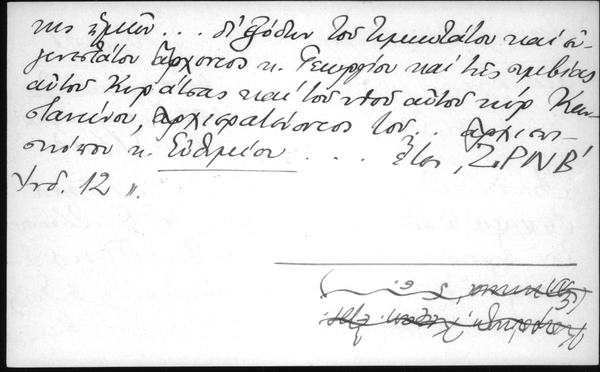 της ἡμῶν . . . δι' ἐξόδων τοῦ τιμιωτάτου καὶ εὐ-
γενεστάτου ἄρχοντος κ. Γεωργίου καὶ τῆς συμβίας
αὐτοῦ Κυράτσας καὶ τοῦ υἱοῦ αὐτοῦ κὺρ Κων-
σταντίνου, ἀρχιερατεύοντος τοῦ . . ἀρχιεπι-
σκόπου κ. Εὐθυμίου . . . . ἔτει ,ΖΡΙΝΒ'
Ἰνδ. 12 ".